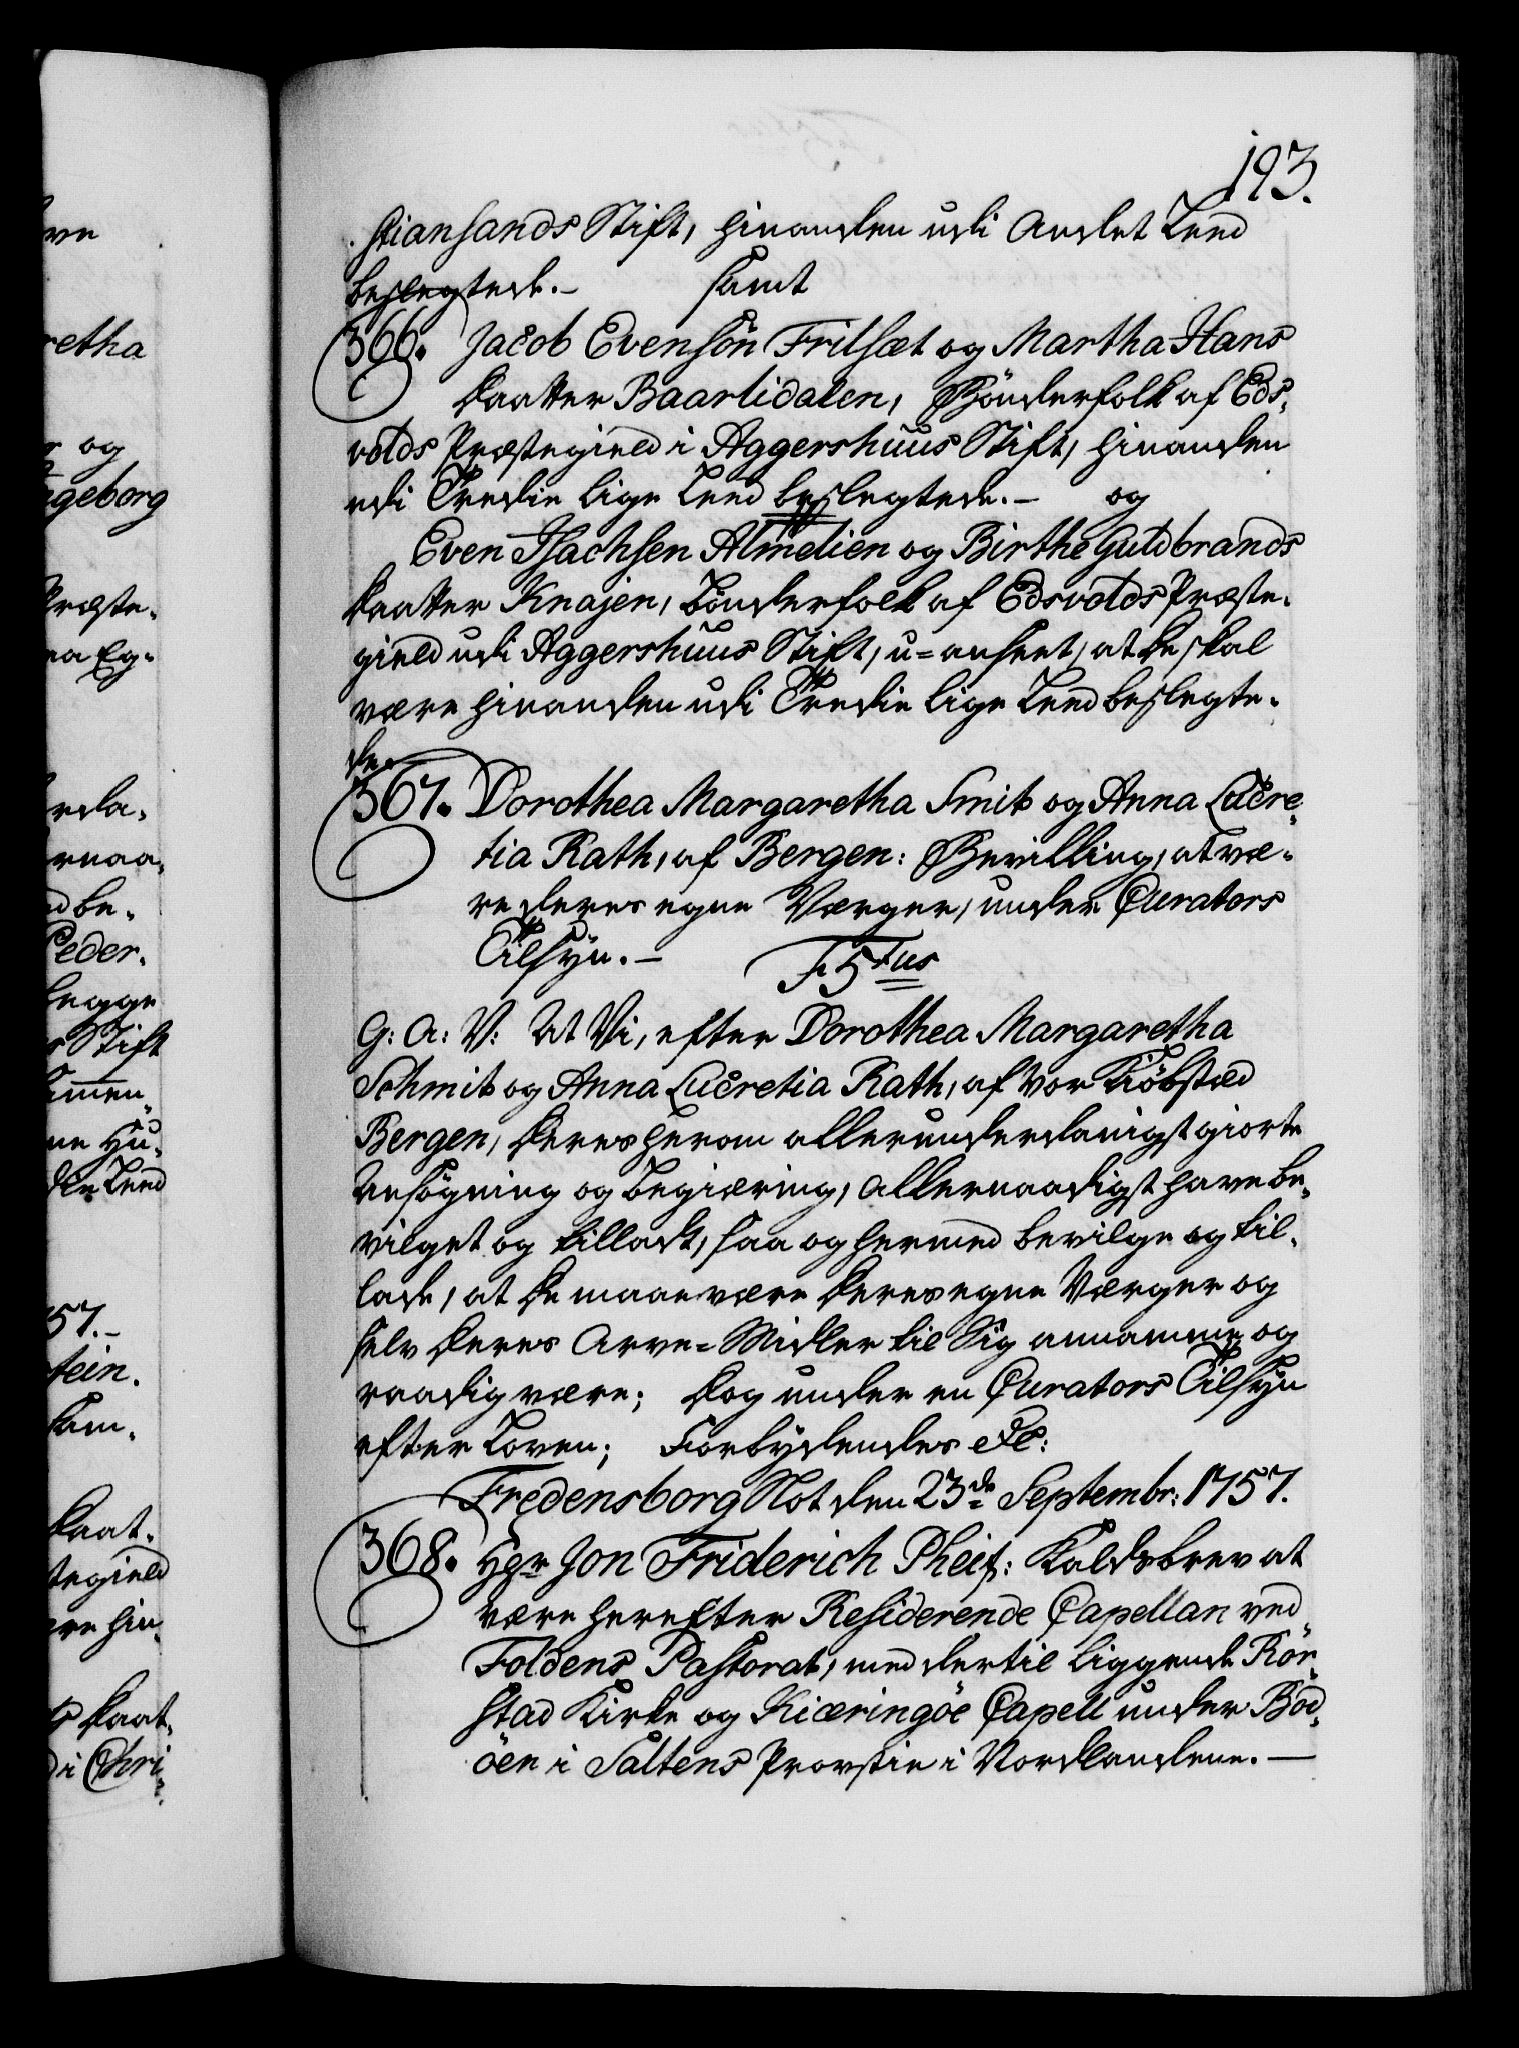 193.
stiansands Stift, hinanden udi Andet Leed
beslegtede.- samt
366. Jacob Evensön Fritsæt og Martha Hans
daatter Baarlidalen, Bönderfolk af Eds-
volds Præstegield i Aggershuus Stift, hinanden
udi Tredie lige Leed beslegtede.- og
Even Isachsen Almelien og Birthe Guldbrands
daatter Knajen, Bönderfolk af Edsvolds Præste-
gield udi Aggershuus Stift, u=anseet, at de skal
være hinanden udi Tredie lige Leed beslegte-
de.
367. Dorothea Margaretha Smit og Anna Lucre-
tia Rath, af Bergen: Bevilling, at væ-
re deres egne Værger, under Curators
Tilsyn.-
F. 5tus
G: A: V: At Vi, efter Dorothea Margaretha
Schmit og Anna Lucretia Rath, af Vor Kiöbstæd
Bergen, deres herom allerunderdanigst giorte
Ansögning og Begiæring, Allernaadigst have be-
vilget og tilladt, saa og hermed bevilge og til-
lade, at de maae være deres egne Værger og
selv deres Arve=Midler til Sig annamme og
raadig være; dog under en Curators Tilsyn
efter Loven; Forbydendes etc:
Fredensborg Slot den 23de Septembr: 1757.
368. Hgr Jon Friderich Pheif: Kaldsbrev at
være herefter Residerende Capellan ved
Foldens Pastorat, med dertil liggende Rör-
stad Kirke og Kiæringöe Capell under Bod-
öen i Saltens Provstie i Nordlandene.-
ve
retha
r og
geborg
Præste-
na Eg-
rda-
rnaa-
d be-
Peder-
begge
r Stift
immen-
ne Hu-
den Leed
57.-
tein.
sam-
daat-
tegield
ere hin-
daat-
di Chri-